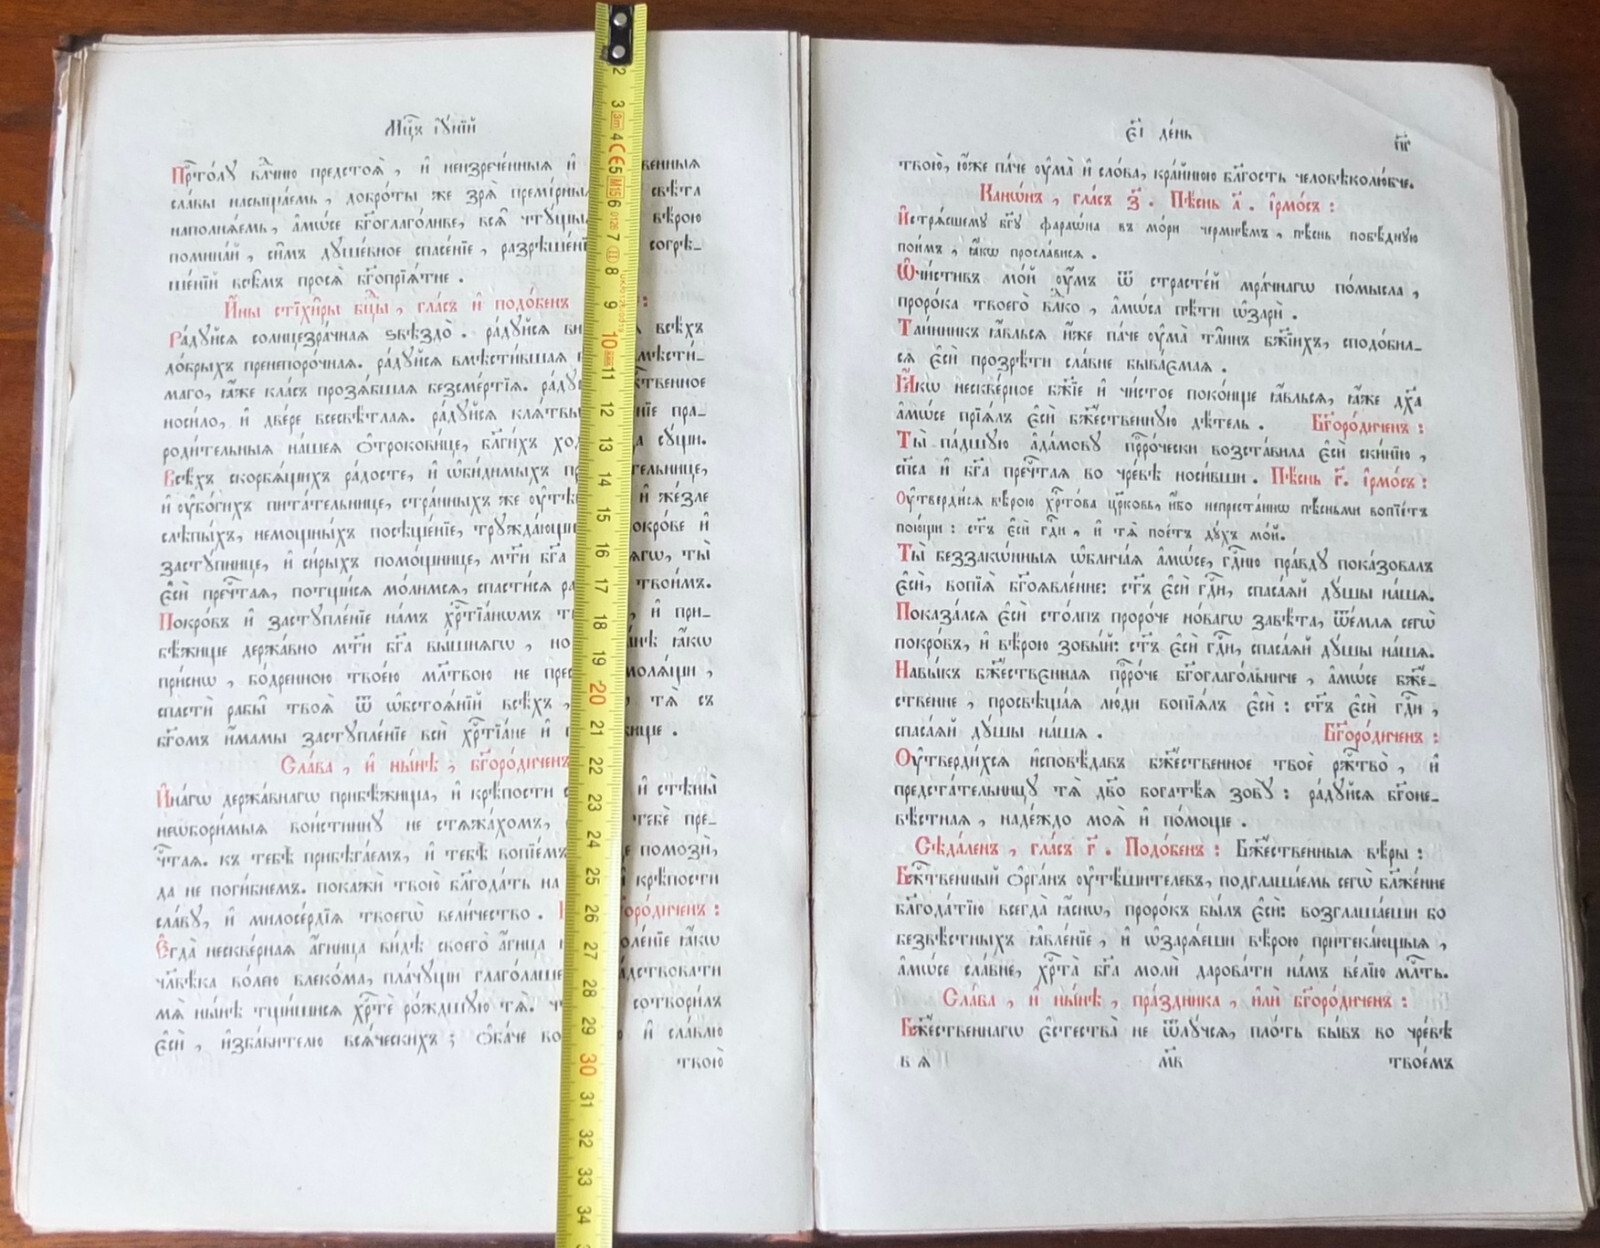 Мц҃ъ і҆ꙋ́нїй
Прⷭ҇то́лꙋ влⷣчню предстоѧ̀, и҆ неизрече́нныѧ и҆ венныѧ
сла́вы насыща́емь, добро́ты же зрѧ̀ премі́рны свѣ́та
наполнѧ́емь, а҆мѡ́се бг҃оглаго́ливе, всѧ̑ чтꙋ́щы вѣ́рою
помина́й, си̑мъ дꙋше́вное спасе́нїе, разрѣше́нї согрѣ-
ше́нїй всѣ̑мъ просѧ̀ бг҃опрїѧ́тне.
И҆́ны стїхи̑ры бцⷣы, гла́съ и҆ подо́бенъ :
Ра́дꙋйсѧ солнцезра́чнаѧ ѕвѣздо̀. ра́дꙋйсѧ ви всѣ́хъ
до́брыхъ пренепоро́чнаѧ. ра́дꙋйсѧ вмѣсти́вшаѧ мѣсти́-
маго, ꙗ҆́же кла́съ прозѧ́бшаѧ безсме́ртїѧ. ра́дꙋ ственное
носи́ло, и҆ две́ре всесвѣ́тлаѧ. ра́дꙋйсѧ клѧ́твы нїе пра-
роди́тельныѧ на́шеѧ ѻ҆трокови́це, благи́хъ хо а сꙋ́щи.
Всѣ́хъ скорбѧ́щихъ ра́досте, и҆ ѡ҆би́димыхъ пр тельнице,
и҆ ᲂу҆бо́гихъ пита́тельнице, стра́нныхъ же ᲂу҆тѣ и҆ же́зле
слѣпы́хъ, немощны́хъ посѣще́нїе, трꙋжда́ющи окро́ве и҆
застꙋ́пнице, и҆ си́рыхъ помо́щнице, мт҃и бг҃а ѧгѡ, ты̀
є҆сѝ прчⷭ҇таѧ, потщи́сѧ мо́лимсѧ, спасти́сѧ ра твои̑мъ.
Покро́въ и҆ застꙋпле́нїе на́мъ хрⷭ҇тїа́нѡмъ т , и҆ при-
бѣ́жище держа́вно мт҃и бг҃а вы́шнѧгѡ, но а́нѣ ꙗ҆́кѡ
при́снѡ, бо́дренною твое́ю мл҃твою не прес молѧ́щи,
спастѝ рабы̑ твоѧ̑ ѿ ѡ҆бстоѧ́нїй всѣ́хъ, тѧ̀ съ
бг҃омъ и҆́мамы застꙋпле́нїе всѝ хрⷭ҇тїа́не и҆ жище.
Сла́ва, и҆ ны́нѣ, бг҃оро́диченъ
И҆на́гѡ держа́внагѡ прибѣ́жища, и҆ крѣ́пости и҆ стѣны̀
неѡбори́мыѧ вои́стиннꙋ не стѧжа́хомъ, тебѐ пре-
чⷭ҇таѧ. къ тебѣ̀ прибѣга́емъ, и҆ тебѣ̀ вопїе́мъ е помозѝ,
да не поги́бнемъ. покажѝ твою̀ бл҃года́ть на и҆ крѣ́пости
сла́вꙋ, и҆ милосе́рдїѧ твоегѡ̀ вели́чество. оро́диченъ:
Є҆гда̀ нескве́рнаѧ а҆́гница ви́дѣ своего̀ а҆́гнца оле́нїе ꙗ҆́кѡ
чл҃вѣ́ка во́лею влеко́ма, пла́чꙋщи глаго́лаше а́дствовати
мѧ̀ ны́нѣ тщи́шисѧ хрⷭ҇тѐ ро́ждшꙋю тѧ̀. чт сотвори́лъ
є҆сѝ, и҆зба́вителю всѧ́ческихъ; ѻ҆ба́че во и҆ сла́влю
твою̀
є҃і де́нь
пг҃
твою̀, ю҆́же па́че ᲂу҆ма̀ и҆ сло́ва, кра́йнюю бл҃гость человѣколю́бче.
Канѡ́нъ, гла́съ з҃. Пѣ́снь а҃. і҆рмо́съ:
И҆стрѧ́сшемꙋ бг҃ꙋ фараѡ́на въ мо́ри чермнѣ́мъ, пѣ́снь побѣ́днꙋю
пои́мъ, ꙗ҆́кѡ просла́висѧ.
Ѡ҆чи́стивъ мо́й ᲂу҆́мъ ѿ страсте́й мра́чнагѡ по́мысла,
проро́ка твоего̀ влⷣко, а҆мѡ́са пѣ́ти ѡ҆зарѝ.
Таи́нникъ ꙗ҆ви́лсѧ и҆́же па́че ᲂу҆ма̀ та̑инъ бж҃їихъ, сподо́бил-
сѧ є҆сѝ прозрѣ́ти сла́вне быва́ємаѧ.
Ꙗ҆́кѡ нескве́рное бж҃їе и҆ чи́стое поко́ище ꙗ҆ви́лсѧ, ꙗ҆́же дх҃а
а҆мѡ́се прїѧ́лъ є҆сѝ бж҃е́ственнꙋю дѣ́тель. Бг҃оро́диченъ:
Ты̀ па́дшꙋю а҆да́мовꙋ прⷪ҇ро́чески возста́вила є҆сѝ ски́нїю,
сп҃са и҆ бг҃а пречⷭ҇таѧ во чре́вѣ носи́вши. Пѣ́снь г҃. і҆рмо́съ:
Оу҆тверди́сѧ вѣ́рою хрⷭ҇то́ва цр҃ковь, и҆́бо непреста́ннѡ пѣ́сньми вопїе́тъ
пою́щи: ст҃ъ є҆сѝ гдⷭ҇и, и҆ тѧ̀ пое́тъ дꙋ́хъ мо́й.
Ты̀ беззакѡ́нныѧ ѡ҆блича́ѧ а҆мѡ́се, гдⷭ҇ню пра́вдꙋ показова́лъ
є҆сѝ, вопїѧ̀ бг҃оѧвле́нне: ст҃ъ є҆сѝ гдⷭ҇и, спаса́ѧй дꙋ́шы на́шѧ.
Показа́лсѧ є҆сѝ сто́лпъ проро́че но́вагѡ завѣ́та, ѿе́млѧ сегѡ̀
покро́въ, и҆ вѣ́рою зовы́й: ст҃ъ є҆сѝ гдⷭ҇и, спаса́ѧй дꙋ́шы на́шѧ.
Навы́къ бж҃е́ствєннаѧ прⷪ҇ро́че бг҃оглаго́льниче, а҆мѡ́се бж҃е́-
ственне, просвѣща́ѧ лю́ди вопїѧ́лъ є҆сѝ: ст҃ъ є҆сѝ гдⷭ҇и,
спаса́ѧй дꙋ́шы на́шѧ. Бг҃оро́диченъ:
Оу҆тверди́хсѧ и҆сповѣ́давъ бж҃е́ственное твоѐ ржⷭ҇тво̀, и҆
предста́тельницꙋ тѧ̀ дв҃о богатѣ́ѧ зовꙋ̀: ра́дꙋйсѧ бг҃оне-
вѣ́стнаѧ, наде́ждо моѧ̀ и҆ по́моще.
Сѣда́ленъ, гла́съ г҃. Подо́бенъ: Бж҃е́ственныѧ вѣ́ры:
Бжⷭ҇твенный ѻ҆рга́нъ ᲂу҆тѣ́шителевъ, подглаша́емь сегѡ̀ бл҃же́нне
бл҃года́тїю всегда̀ ꙗ҆́снѡ, проро́къ бы́лъ є҆сѝ: возглаша́еши бо
безвѣ́стныхъ ꙗ҆вле́нїе, и҆ ѡ҆зарѧ́еши вѣ́рою притека́ющыѧ,
а҆мѡ́се сла́вне, хрⷭ҇та̀ бг҃а молѝ дарова́ти на́мъ ве́лїю млⷭ҇ть.
Сла́ва, и҆ ны́нѣ, пра́здника, и҆лѝ бг҃оро́диченъ:
Бж҃е́ственнагѡ є҆стества̀ не ѿлꙋ́чсѧ, пло́ть бы́въ во чре́вѣ
в ѧ мв҃ твое́мъ
2
3
3m
4
CE
5
M15
6
0126
7
II
8
9
10
11
12
13
14
15
16
17
18
19
20
21
22
23
24
25
26
27
28
29
30
31
32
33
34